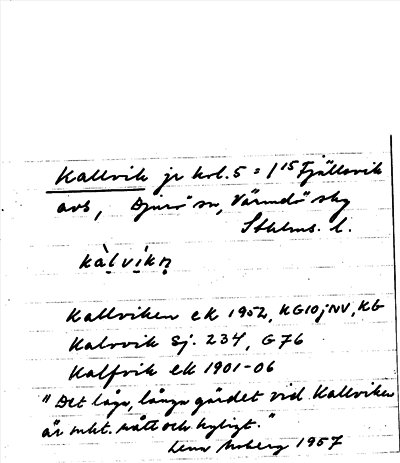 Kallvik jr kol. 5 = 1/15 Fjällsvik
avs, Djurö sn, Värmdö skg
Sthlms. l.
kàḷvíkṇ
Kallviken ek 1952, KG10jNV, KG
Kalvvik Sj. 234, G76
Kalfvik ek 1901-06
"Det låga, långa gärdet vid Kallviken
är mkt. vått och kyligt."
Moberg 1957